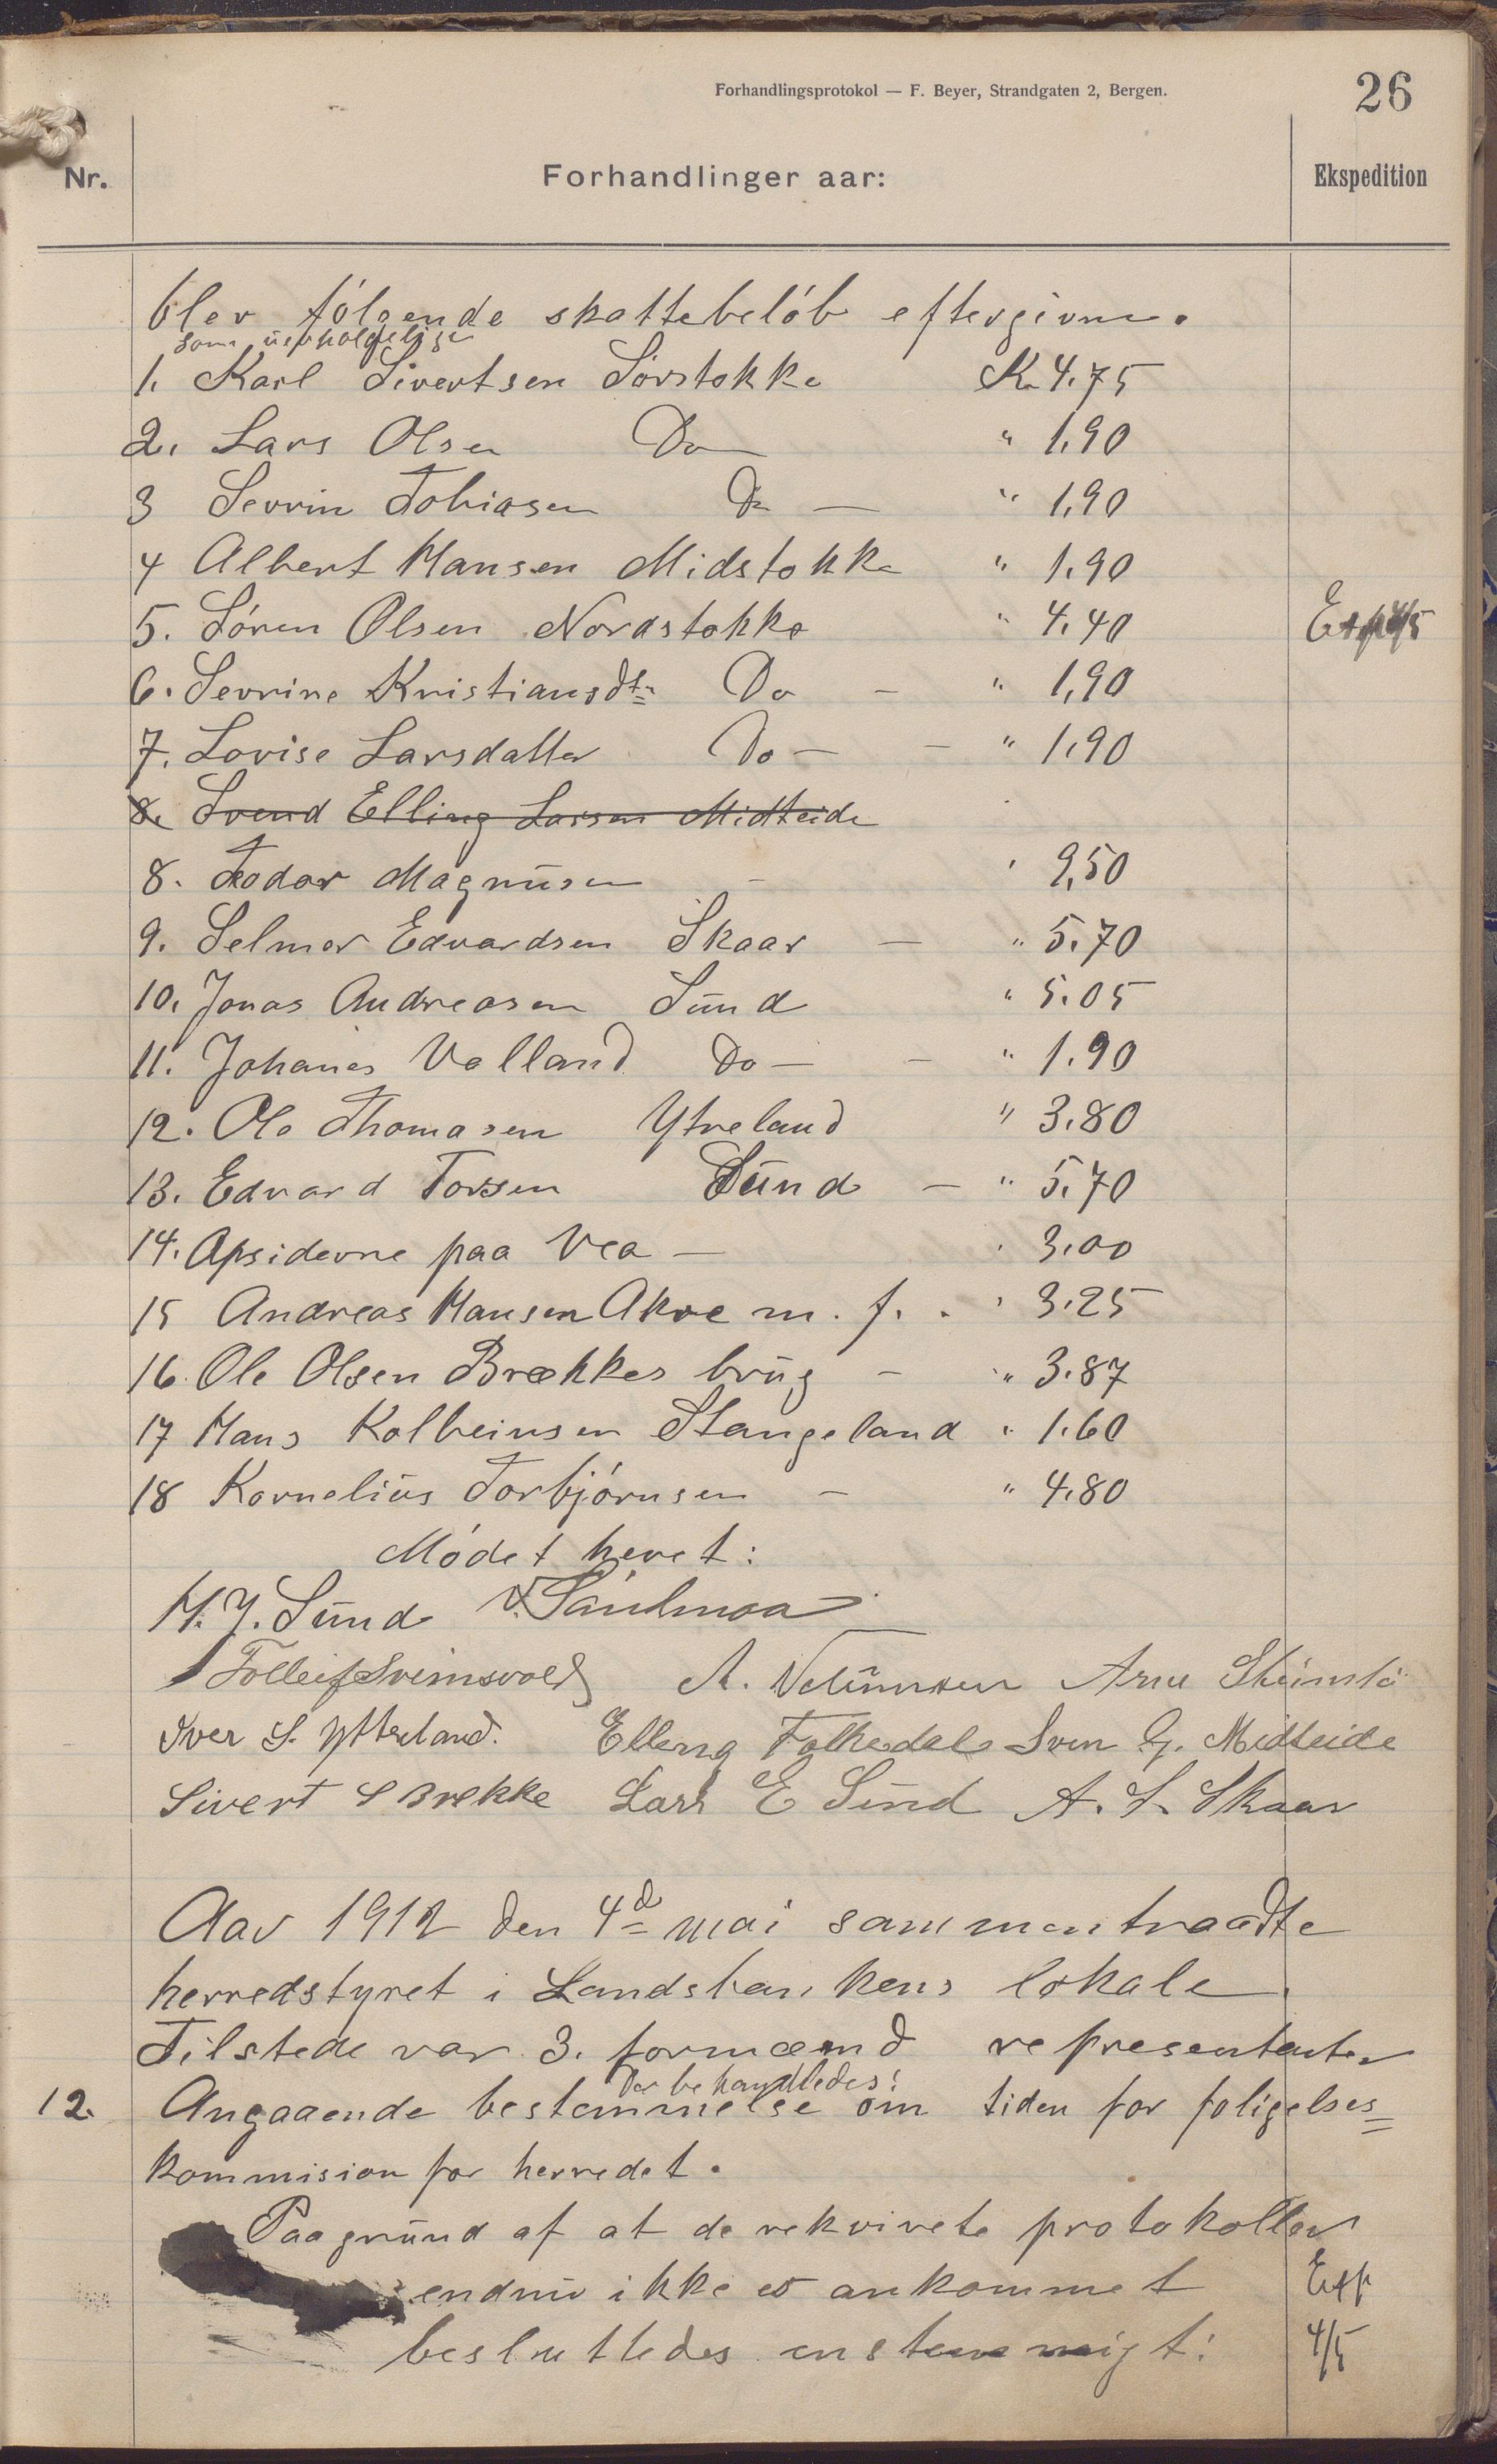 Forhandlingsprotokol — F. Beyer, Strandgaten 2, Bergen.
26
Nr.
Forhandlinger aar:
Ekspedition
blev følgende skattebeløb eftergivne.
som uerholdelige
1. Karl Sivertsen Sørstokke K. 4.75
2. Lars Olsen Do " 1.90
3 Sevrin Tobiasen Do — " 1.90
4 Albert Hansen Midstokke " 1.90
5. Søren Olsen Nordstokke " 4.40 Exp 4/5
6. Sevrine Kristiansdtr Do — " 1,90
7. Lovise Larsdatter Do — — " 1.90
8. Svend Elling Larsen Midteide
8. Teodor Magnusen — " 9,50
9. Selmer Edvardsen Skaar — " 5.70
10. Jonas Andreasen Sund " 5.05
11. Johanes Velland Do — — " 1.90
12. Ole Thomasen Ytreland " 3.80
13. Edvard Torsen Sund — " 5.70
14. Opsiderne paa Vea — " 3.00
15 Andreas Hansen Akre m. f. . " 3.25
16. Ole Olsen Brækkes brug — " 3.87
17 Hans Kolbeinsen Stangeland " 1.60
18 Kornelius Torbjørnsen — " 4.80
Mødet hevet:
H. J. Sund
Tolleif Sveinsvold A. Arne
Iver S. Yttreland. Elling Falkedal Sven G. Midteide
Sivert S Brekke Lars E Sund A. S. Skaar
Aar 1912 den 4d mai sammentraadte
herredstyret i Landsbankens lokale.
Tilstede var 3. formænd representanter
Der behandledes:
12. Angaaende bestemmelse om tiden for foligelses=
kommision for herredet.
Paa grund af at de rekvirete protokoller
endnu ikke er ankommet Exp
besluttedes enstemmigt: 4/5